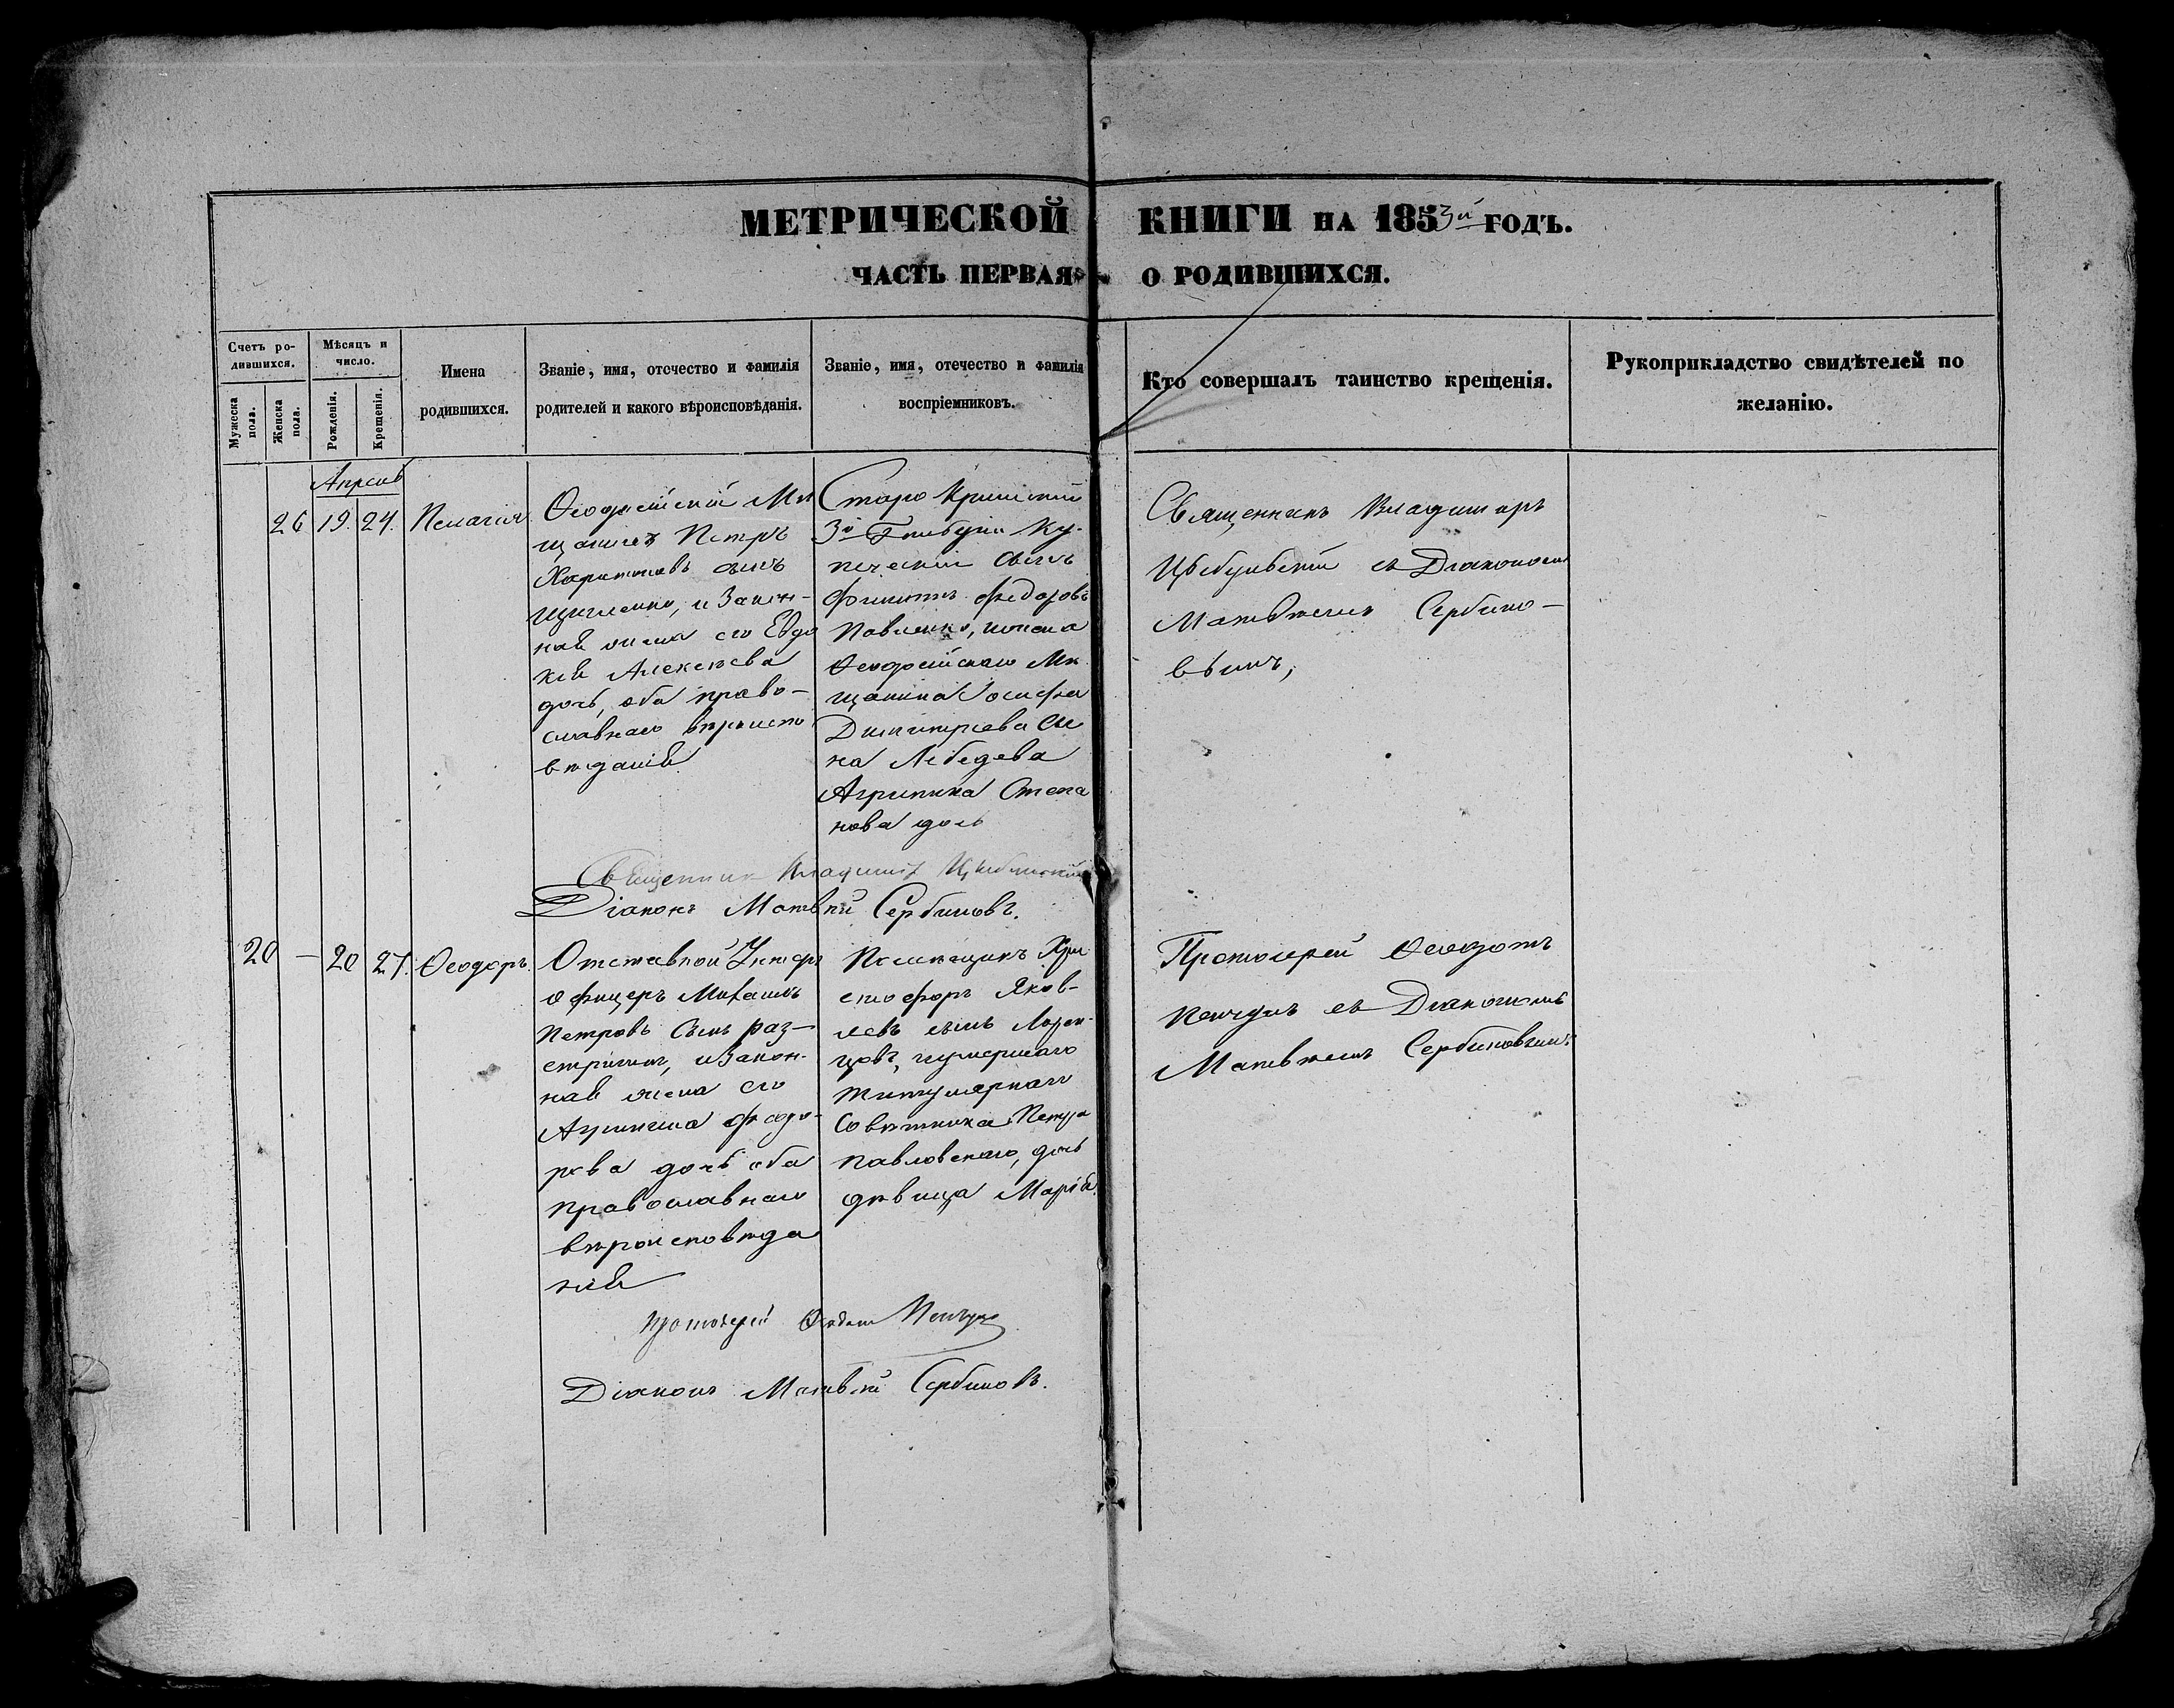 МЕТРИЧЕСКОЙ КНИГИ НА 1853й ГОДЪ.
ЧАСТЬ ПЕРВАЯ О РОДИВШИХСЯ.
Счетъ ро-
дившихся.
Мужеска пола.
Женска пола.
Мѣсяцъ и
число.
Рожденія.
Крещенія.
Имена
родившихся.
Званіе, имя, отечество и фамилія
родителей и какого вѣроисповѣданія.
Званіе, имя, отечество и фамилія
воспріемниковъ.
Кто совершалъ таинство крещенія.
Рукоприкладство свидѣтелей по
желанію.
Апрель
26 19. 24. Пелагия
Ѳеодосійскій Мѣ
щанинъ Петръ
Харитоновъ сынъ
и Закон-
ная жена его Евдо
кія Алексѣева
дочь, оба право-
славнаго вѣроиспо
вѣданія
Старо Крымскій
3й Гильдіи Ку-
печескій сынъ
Филиппъ Федоровъ
Павленко, и жена
Ѳеодосійскаго Мѣ
щанина Іосифа
Димитріева сы
на Лебедева
Агрипина Степа
нова дочь
Священникъ Владимиръ
съ Діакономъ
Матвѣемъ Сербино-
вымъ,
Священникъ Владимиръ
Діаконъ Матвѣй Сербиновъ.
20 — 20 27. Ѳеодоръ.
Отставной Унтеръ
офицеръ Михаилъ
Петровъ Сынъ Раз-
и Закон-
ная жена его
Агрипина Феодо-
рова дочь оба
православнаго
вѣроисповѣда
нія
Помѣщикъ Хри
стофоръ Яков-
левъ сынъ Лорен-
цовъ, и умершаго
титулярнаго
Совѣтника Петра
Павловскаго, дочь
дѣвица Марія.
Протоіерей Ѳеодотъ
съ Діакономъ
Матвѣемъ Сербиновымъ
Протоіерей Ѳеодотъ
Діаконъ Матвѣй Сербиновъ.